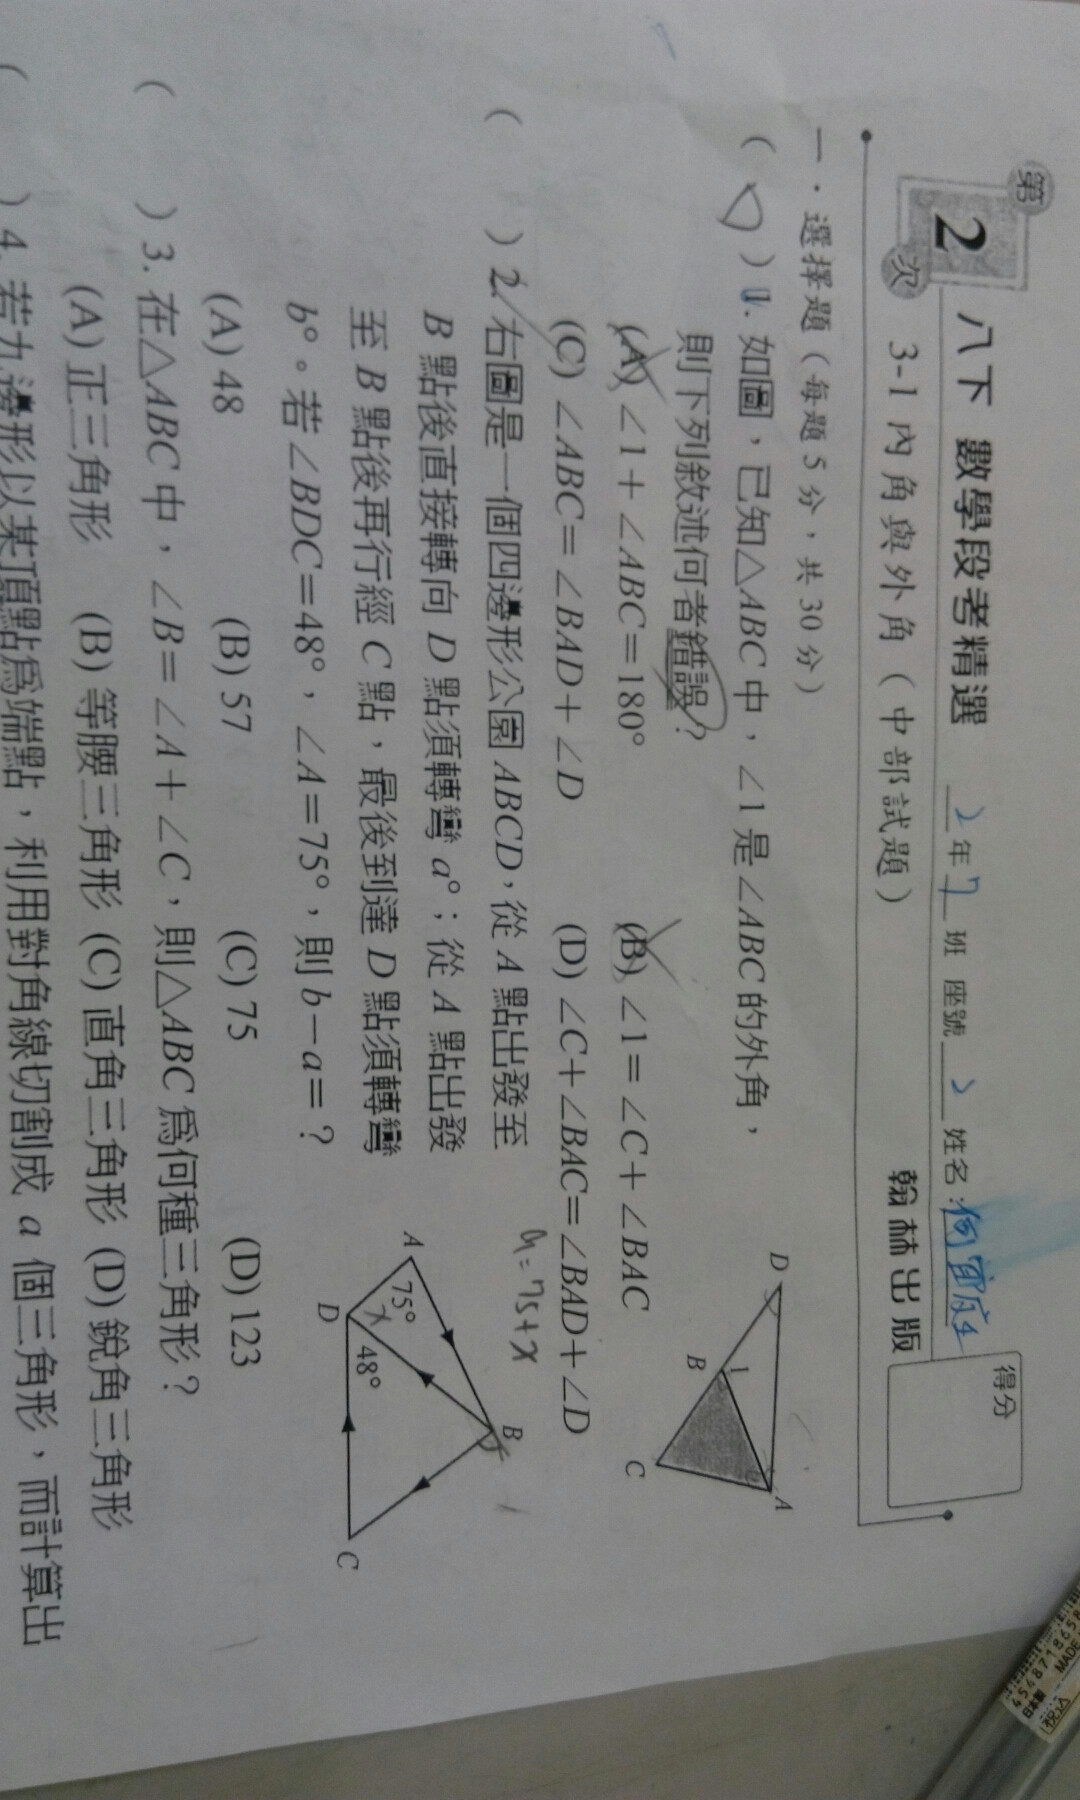 第2次
八下 數學段考精選 2年7班 座號 2 姓名:
得分
3-1 內角與外角(中部試題) 翰林出版
一.選擇題(每題5分,共30分)
( D ) 1. 如圖,已知△ABC中,∠1是∠ABC的外角,
則下列敘述何者錯誤?
(A) ∠1+∠ABC=180° (B) ∠1=∠C+∠BAC
(C) ∠ABC=∠BAD+∠D (D) ∠C+∠BAC=∠BAD+∠D
D 1 B A C
( ) 2. 右圖是一個四邊形公園ABCD,從A點出發至
B點後直接轉向D點須轉彎a°;從A點出發
至B點後再行經C點,最後到達D點須轉彎
b°。若∠BDC=48°,∠A=75°,則b-a=?
=75+x
A 75° x D 48° B C
(A) 48 (B) 57 (C) 75 (D) 123
( ) 3. 在△ABC中,∠B=∠A+∠C,則△ABC為何種三角形?
(A) 正三角形 (B) 等腰三角形 (C) 直角三角形 (D) 銳角三角形
( ) 4. 若九邊形以某頂點為端點,利用對角線切割成 a 個三角形,而計算出